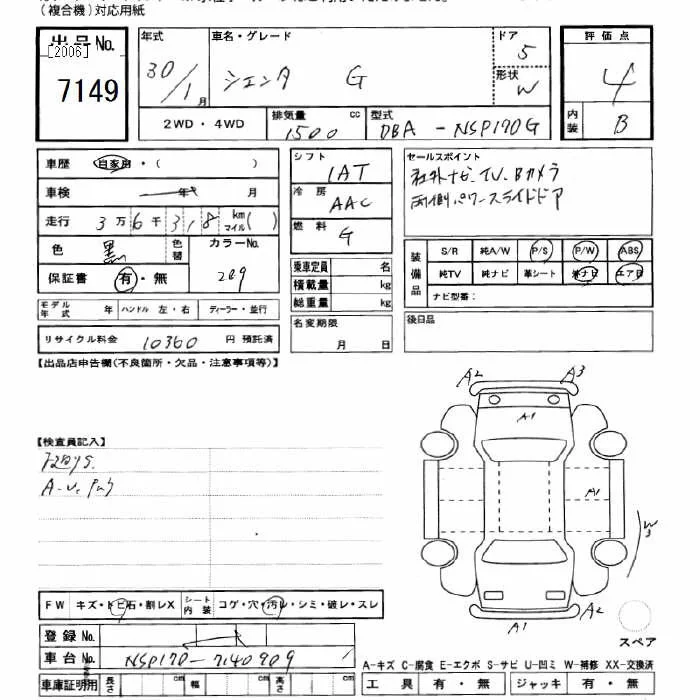 (複合機)対応用紙
出品No.
[2006]
7149
年式
30/1月
車名・グレード
シエンタ G
ドア
5
形状
W
評価点
4
内装
B
2WD・4WD
排気量
1500 cc
型式
DBA-NSP170G
車歴
自家用・( )
車検
年 月
走行
3万6千318 km マイル( )
色
黒
色替
カラーNo.
209
保証書
有・無
モデル年式 年
ハンドル 左・右
ディーラー・並行
リサイクル料金 10360 円 預託済
シフト
IAT
冷房
AAC
燃料
G
乗車定員 名
積載量 kg
総重量 kg
名変期限
月 日
セールスポイント
社外ナビ、TV、Bカメラ
両側パワースライドドア
装備品
S/R 純A/W P/S P/W ABS
純TV 純ナビ 革シート エアB
ナビ型番:
後日品
【出品店申告欄(不良箇所・欠品・注意事項等)】
【検査員記入】
A2 A3
A1
A1
W3
A1 A2
スペア
FW キズ・トビ石・割レX
シート内装 コゲ・穴・汚レ・シミ・破レ・スレ
登録No.
車台No. NSP170-7140909
車庫証明用 長さ cm 幅 cm 高さ cm
A-キズ C-腐食 E-エクボ S-サビ U-凹ミ W-補修 XX-交換済
工具 有・無 ジャッキ 有・無